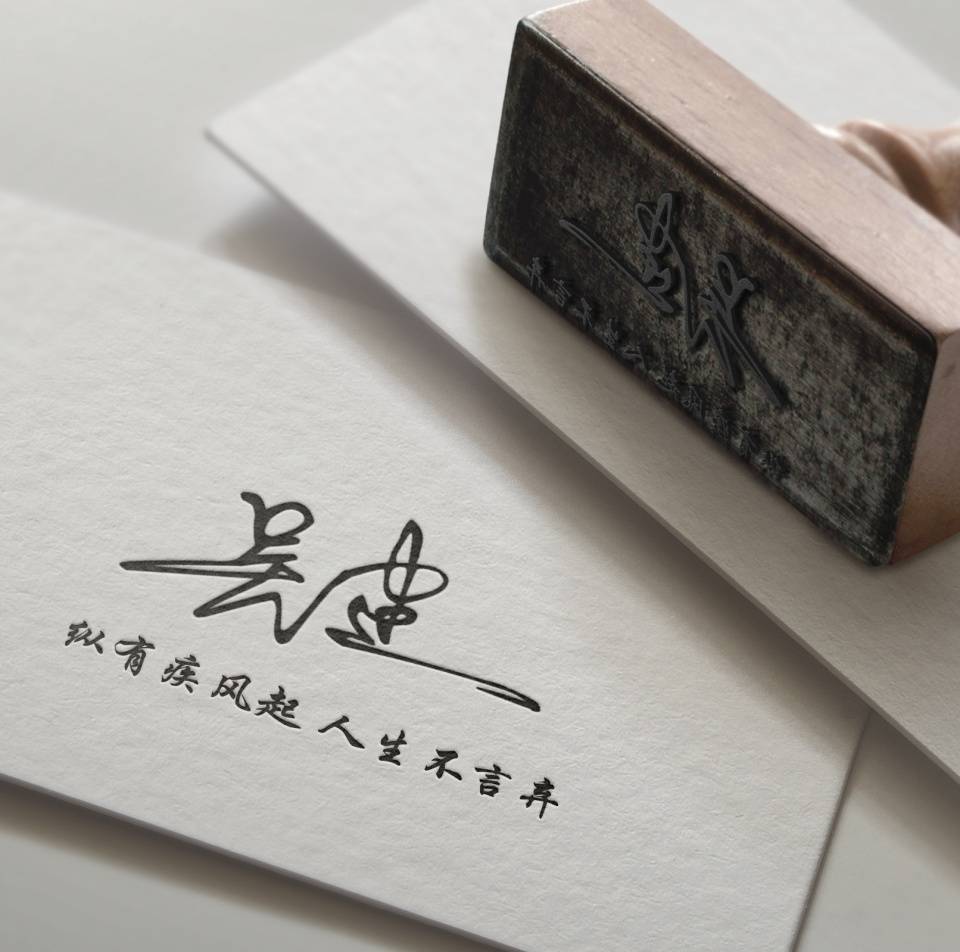 吴迪
纵有疾风起 人生不言弃